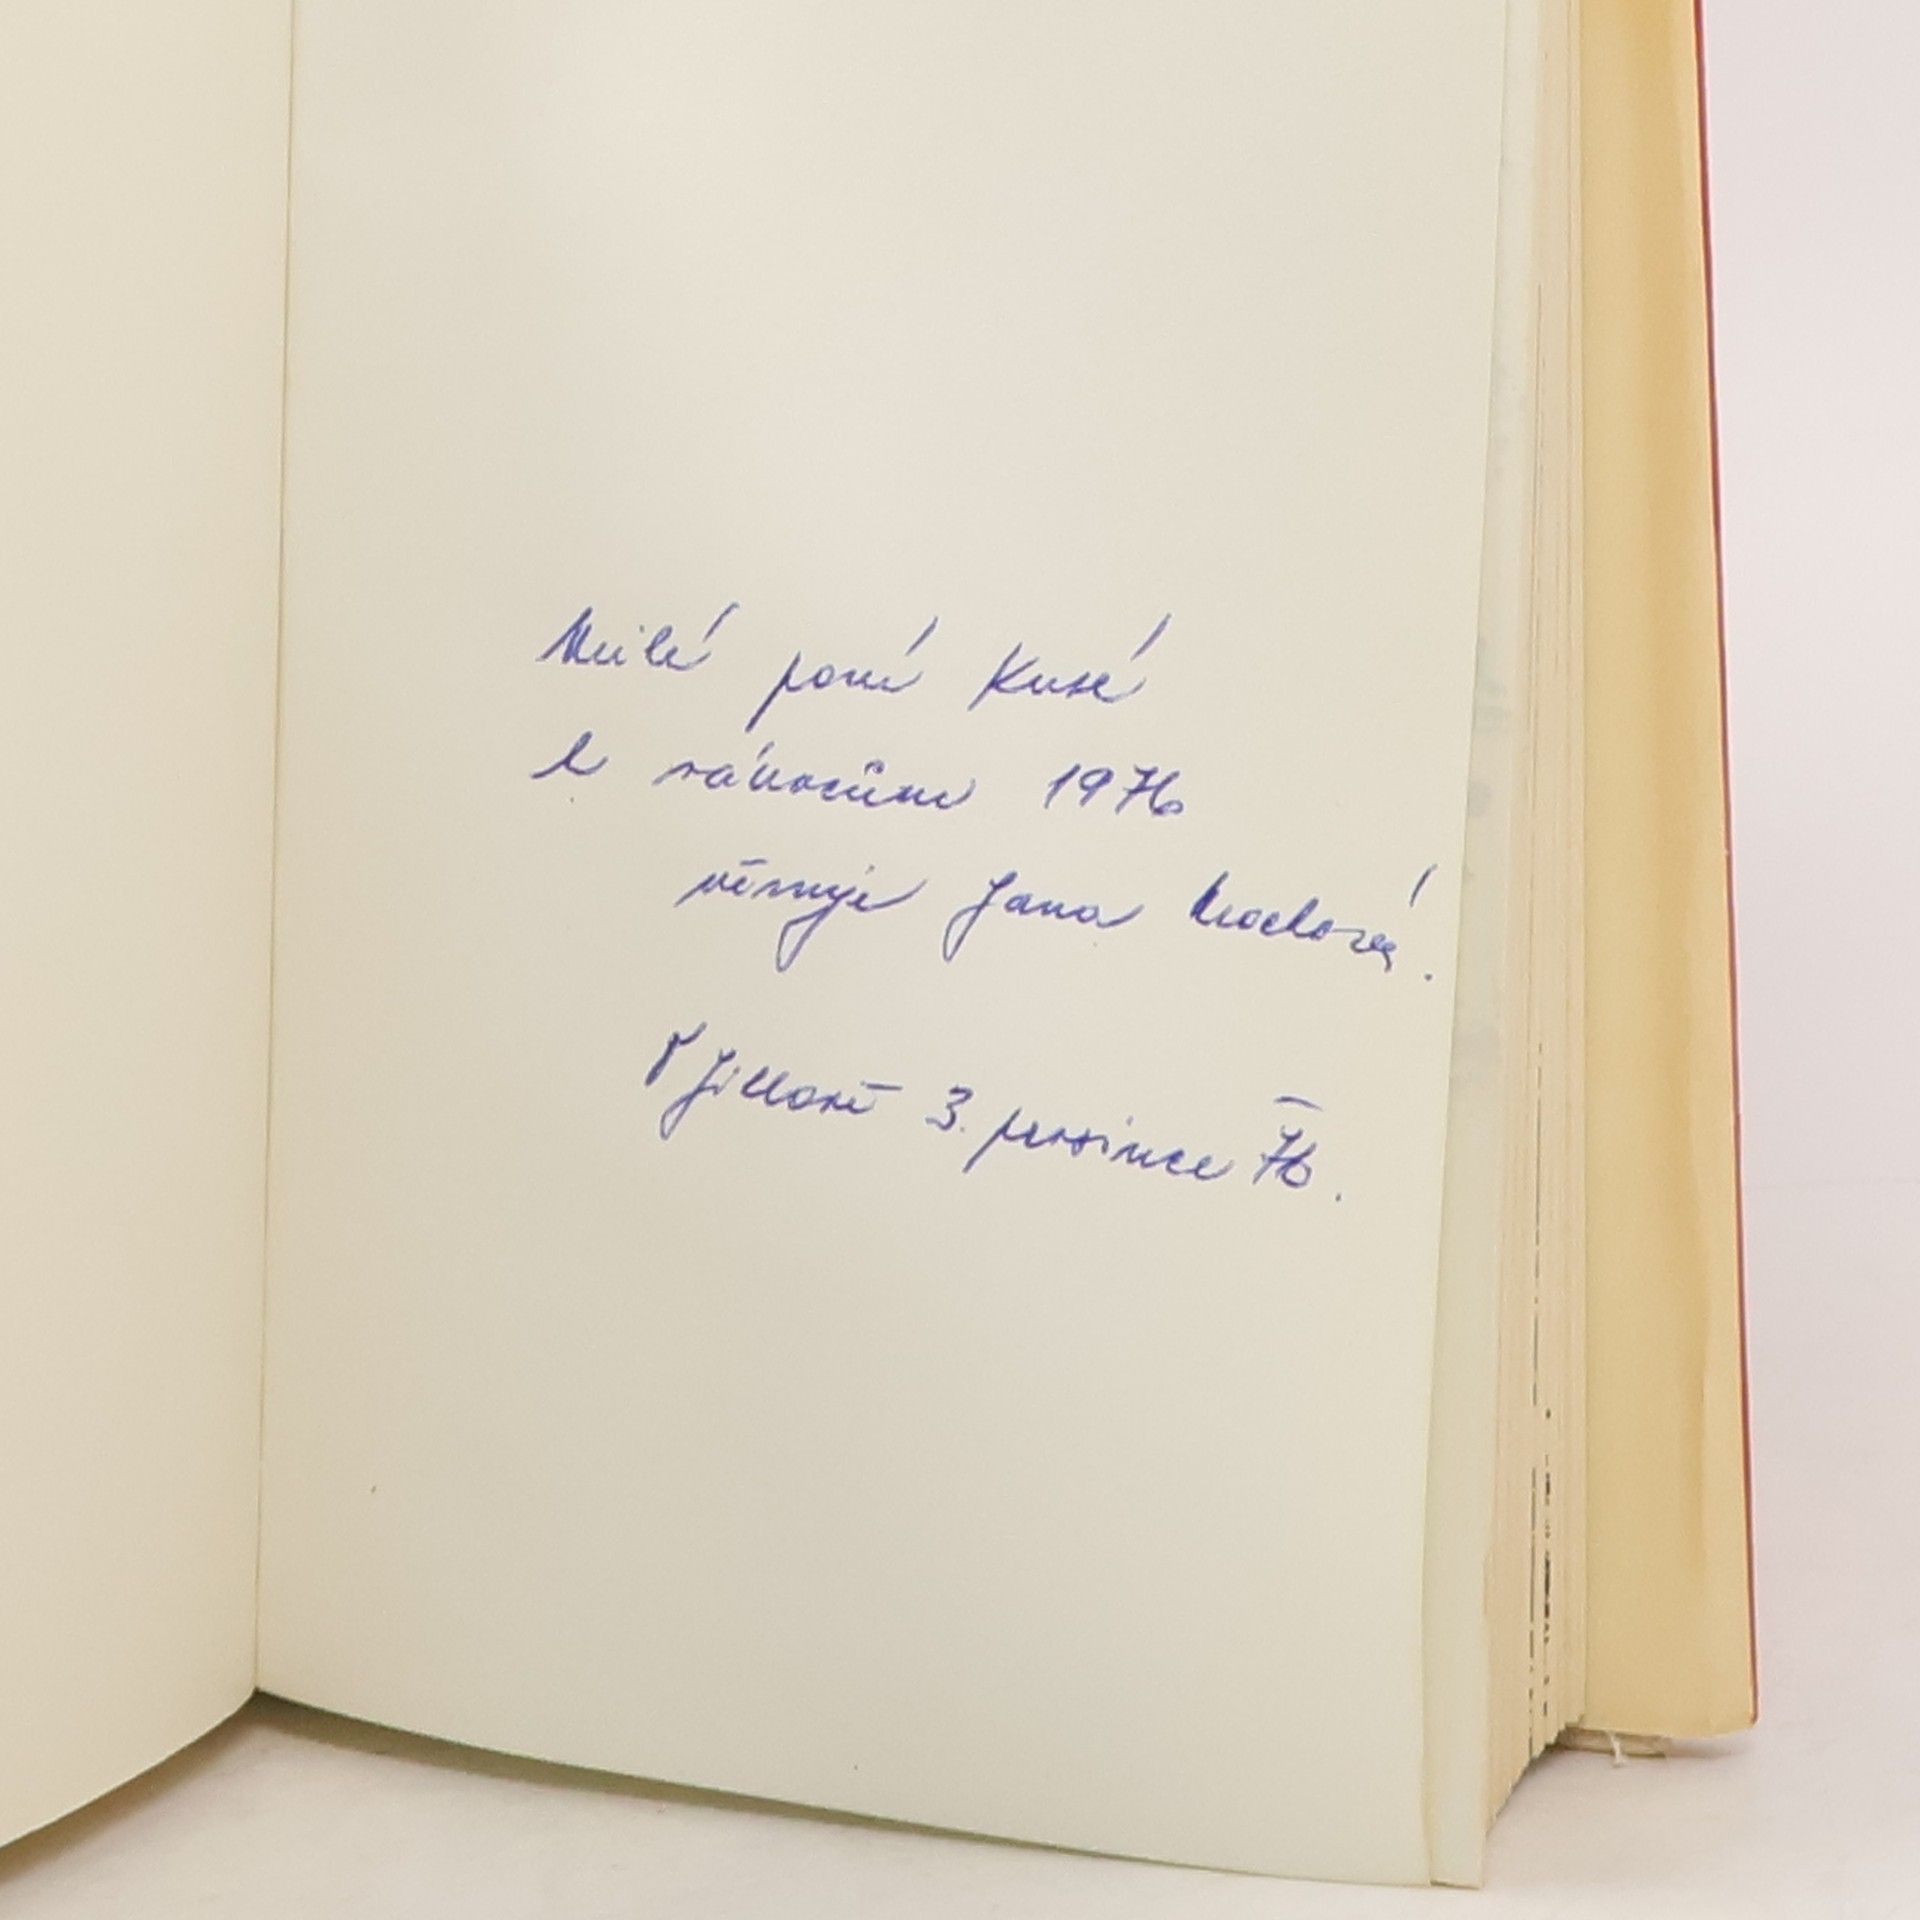 Milé paní Kusé
k vánocům 1976
věnuje Jana
V Jílové 3. prosince 76.